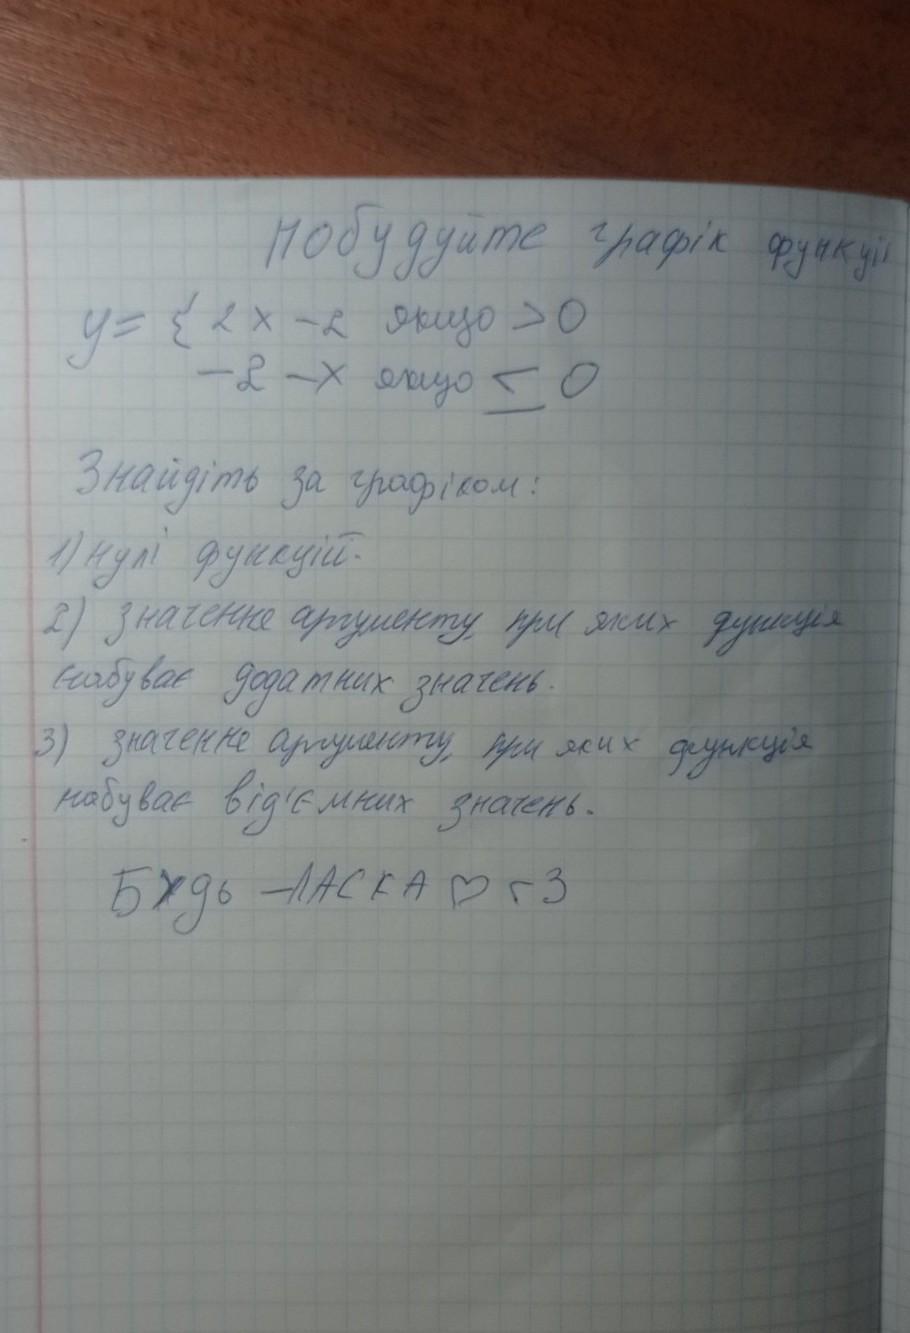 Побудуйте графік функції
y = { 2x - 2 якщо > 0
-2 - x якщо ≤ 0
Знайдіть за графіком:
1) нулі функцій.
2) значення аргументу, при яких функція
набуває додатних значень.
3) значення аргументу, при яких функція
набуває від'ємних значень.
Будь -ЛАСКА ♡ <3